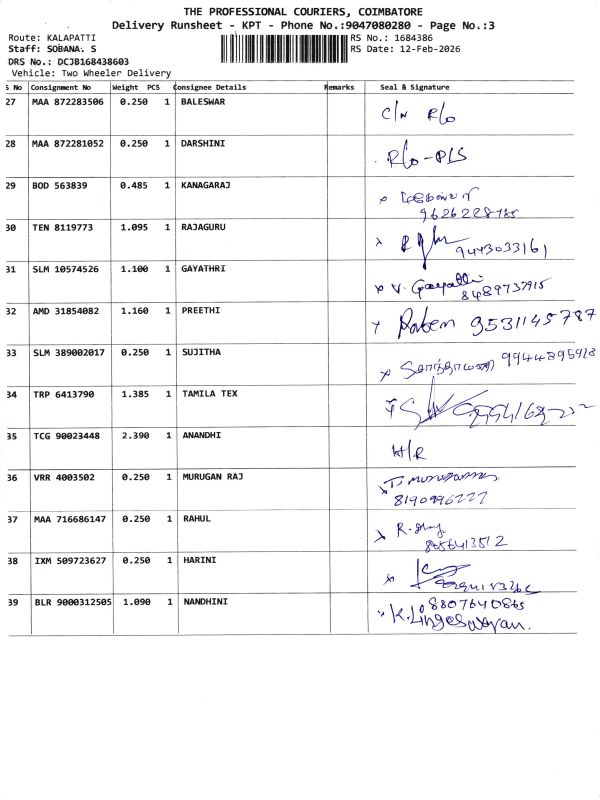 THE PROFESSIONAL COURIERS, COIMBATORE
Delivery Runsheet - KPT - Phone No.:9047080280 - Page No.:3
Route: KALAPATTI
Staff: SOBANA. S
DRS No.: DCJB168438603
Vehicle: Two Wheeler Delivery
RS No.: 1684386
RS Date: 12-Feb-2026
S No Consignment No Weight PCS Consignee Details Remarks Seal & Signature
27 MAA 872283506 0.250 1 BALESWAR C/N R/o
28 MAA 872281052 0.250 1 DARSHINI R/o-P/S
29 BOD 563839 0.485 1 KANAGARAJ
30 TEN 8119773 1.095 1 RAJAGURU
9443033161
31 SLM 10574526 1.100 1 GAYATHRI V. Gayathri
8489737915
32 AMD 31854082 1.160 1 PREETHI 9531145787
33 SLM 389002017 0.250 1 SUJITHA
34 TRP 6413790 1.385 1 TAMILA TEX
35 TCG 90023448 2.390 1 ANANDHI H/R
36 VRR 4003502 0.250 1 MURUGAN RAJ
37 MAA 716686147 0.250 1 RAHUL
38 IXM 509723627 0.250 1 HARINI
39 BLR 9000312505 1.090 1 NANDHINI 8807640865
K. Lingeswaran.